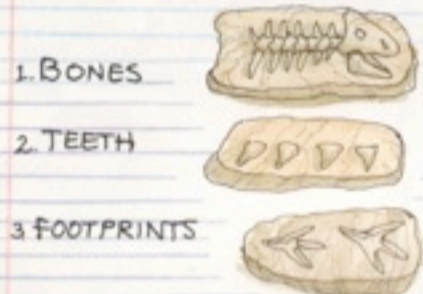 1. BONES
2. TEETH
3 FOOTPRINTS